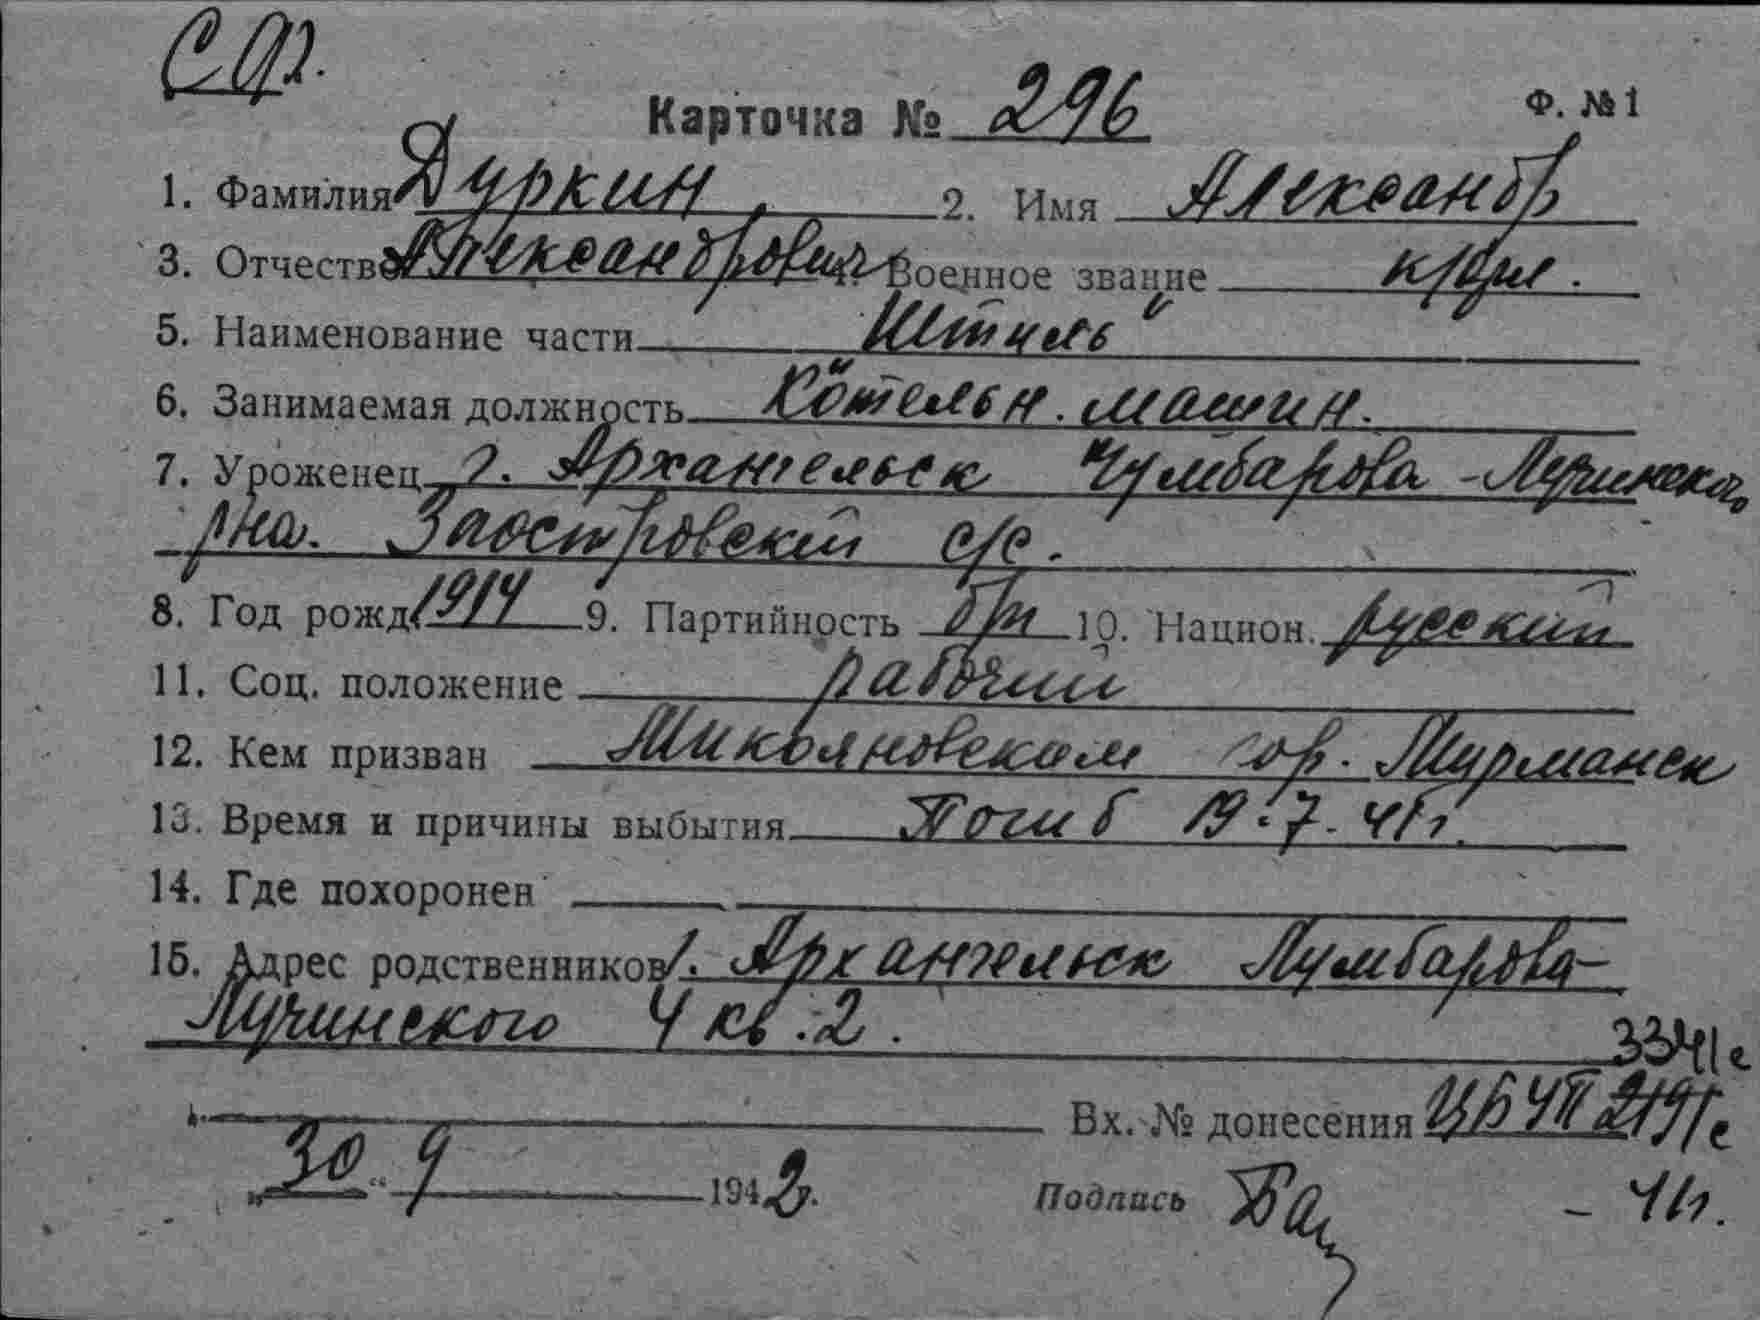 СФл.
Карточка № 296 Ф. №1
1. Фамилия Дуркин 2. Имя Александр
3. Отчество Александрович Военное звание к/фл.
5. Наименование части "Штиль"
6. Занимаемая должность Котельн. машин.
7. Уроженец г. Архангельск Чумбарова-Лучинского
р-на. Заостровский с/с.
8. Год рожд. 1914 9. Партийность б/п 10. Национ. русский
11. Соц. положение рабочий
12. Кем призван Микояновским гор. Мурманск
13. Время и причины выбытия Погиб 19.7.41г.
14. Где похоронен
15. Адрес родственников г. Архангельск Чумбарова-
Лучинского 4 кв. 2.
334/с
Вх. № донесения
"30" 9 1942г. Подпись - 41г.